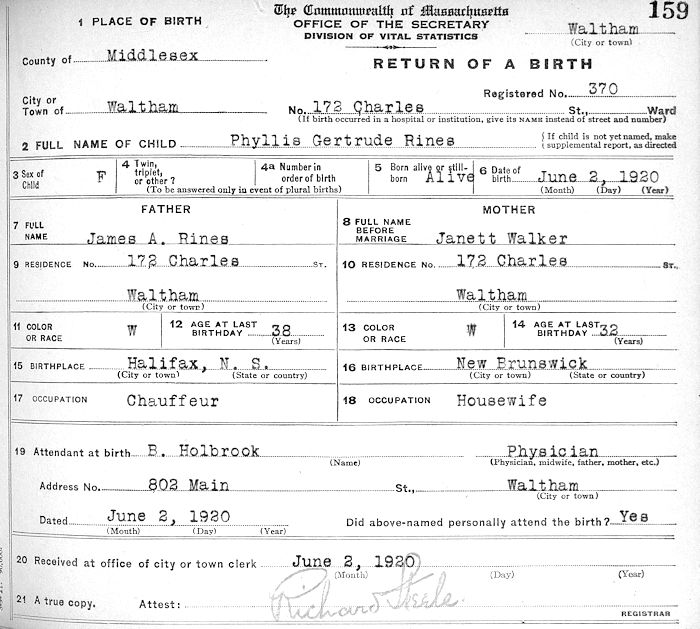 The Commonwealth of Massachusetts
159
1 PLACE OF BIRTH
OFFICE OF THE SECRETARY
Waltham
DIVISION OF VITAL STATISTICS
(City or town)
County of Middlesex
RETURN OF A BIRTH
Registered No. 370
City or Town of Waltham No. 172 Charles St., Ward
(If birth occurred in a hospital or institution, give its NAME instead of street and number)
2 FULL NAME OF CHILD Phyllis Gertrude Rines { If child is not yet named, make supplemental report, as directed
3 Sex of Child F 4 Twin, triplet, or other? 4a Number in order of birth 5 Born alive or still-born Alive 6 Date of birth June 2, 1920
(To be answered only in event of plural births) (Month) (Day) (Year)
FATHER MOTHER
7 FULL NAME James A. Rines 8 FULL NAME BEFORE MARRIAGE Janett Walker
9 RESIDENCE No. 172 Charles ST. 10 RESIDENCE No. 172 Charles ST.
Waltham Waltham
(City or town) (City or town)
11 COLOR OR RACE W 12 AGE AT LAST BIRTHDAY 38 (Years) 13 COLOR OR RACE W 14 AGE AT LAST BIRTHDAY 32 (Years)
15 BIRTHPLACE Halifax, N. S. 16 BIRTHPLACE New Brunswick
(City or town) (State or country) (City or town) (State or country)
17 OCCUPATION Chauffeur 18 OCCUPATION Housewife
19 Attendant at birth B. Holbrook Physician
(Name) (Physician, midwife, father, mother, etc.)
Address No. 802 Main St., Waltham
(City or town)
Dated June 2, 1920 Did above-named personally attend the birth? Yes
(Month) (Day) (Year)
20 Received at office of city or town clerk June 2, 1920
(Month) (Day) (Year)
21 A true copy. Attest: Richard Steele.
REGISTRAR